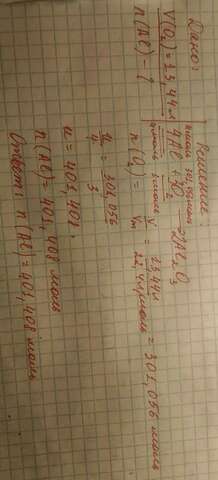 Дано:
V(O₂)=13,44л
n(Al) - ?
Решение:
4Al + 3O₂ → 2Al₂O₃
n(O₂) = V/Vm = 13,44л / 22,4л/моль = 301,056 моль
x/4 = 301,056/3
x = 401,408
n(Al) = 401,408 моль
Ответ: n(Al) = 401,408 моль